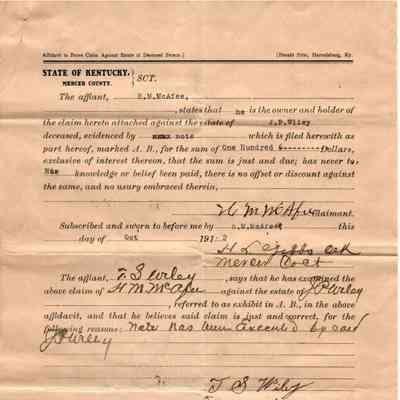 Affidavit to Prove Claim Against Estate of Deceased Person.] [Herald Print, Harrodsburg, Ky.
STATE OF KENTUCKY, } SCT.
MERCER COUNTY.
The affiant, H.M.McAfee,
, states that he is the owner and holder of
the claim hereto attached against the estate of J.P.Wiley
deceased, evidenced by note which is filed herewith as
part hereof, marked A. B., for the sum of One Hundred &-------- Dollars,
exclusive of interest thereon, that the sum is just and due; has never to
his knowledge or belief been paid, there is no offset or discount against
the same, and no usury embraced therein,
H M McAfee Claimant.
Subscribed and sworn to before me by H.M.McAfee this
day of Oct 191 2
Mercer
The affiant, T S Wiley , says that he has examined the
above claim of H M McAfee against the estate of J P Wiley
, referred to as exhibit in A. B., in the above
affidavit, and that he believes said claim is just and correct, for the
following reasons: Note has been executed by said
J P Wiley
T S Wiley